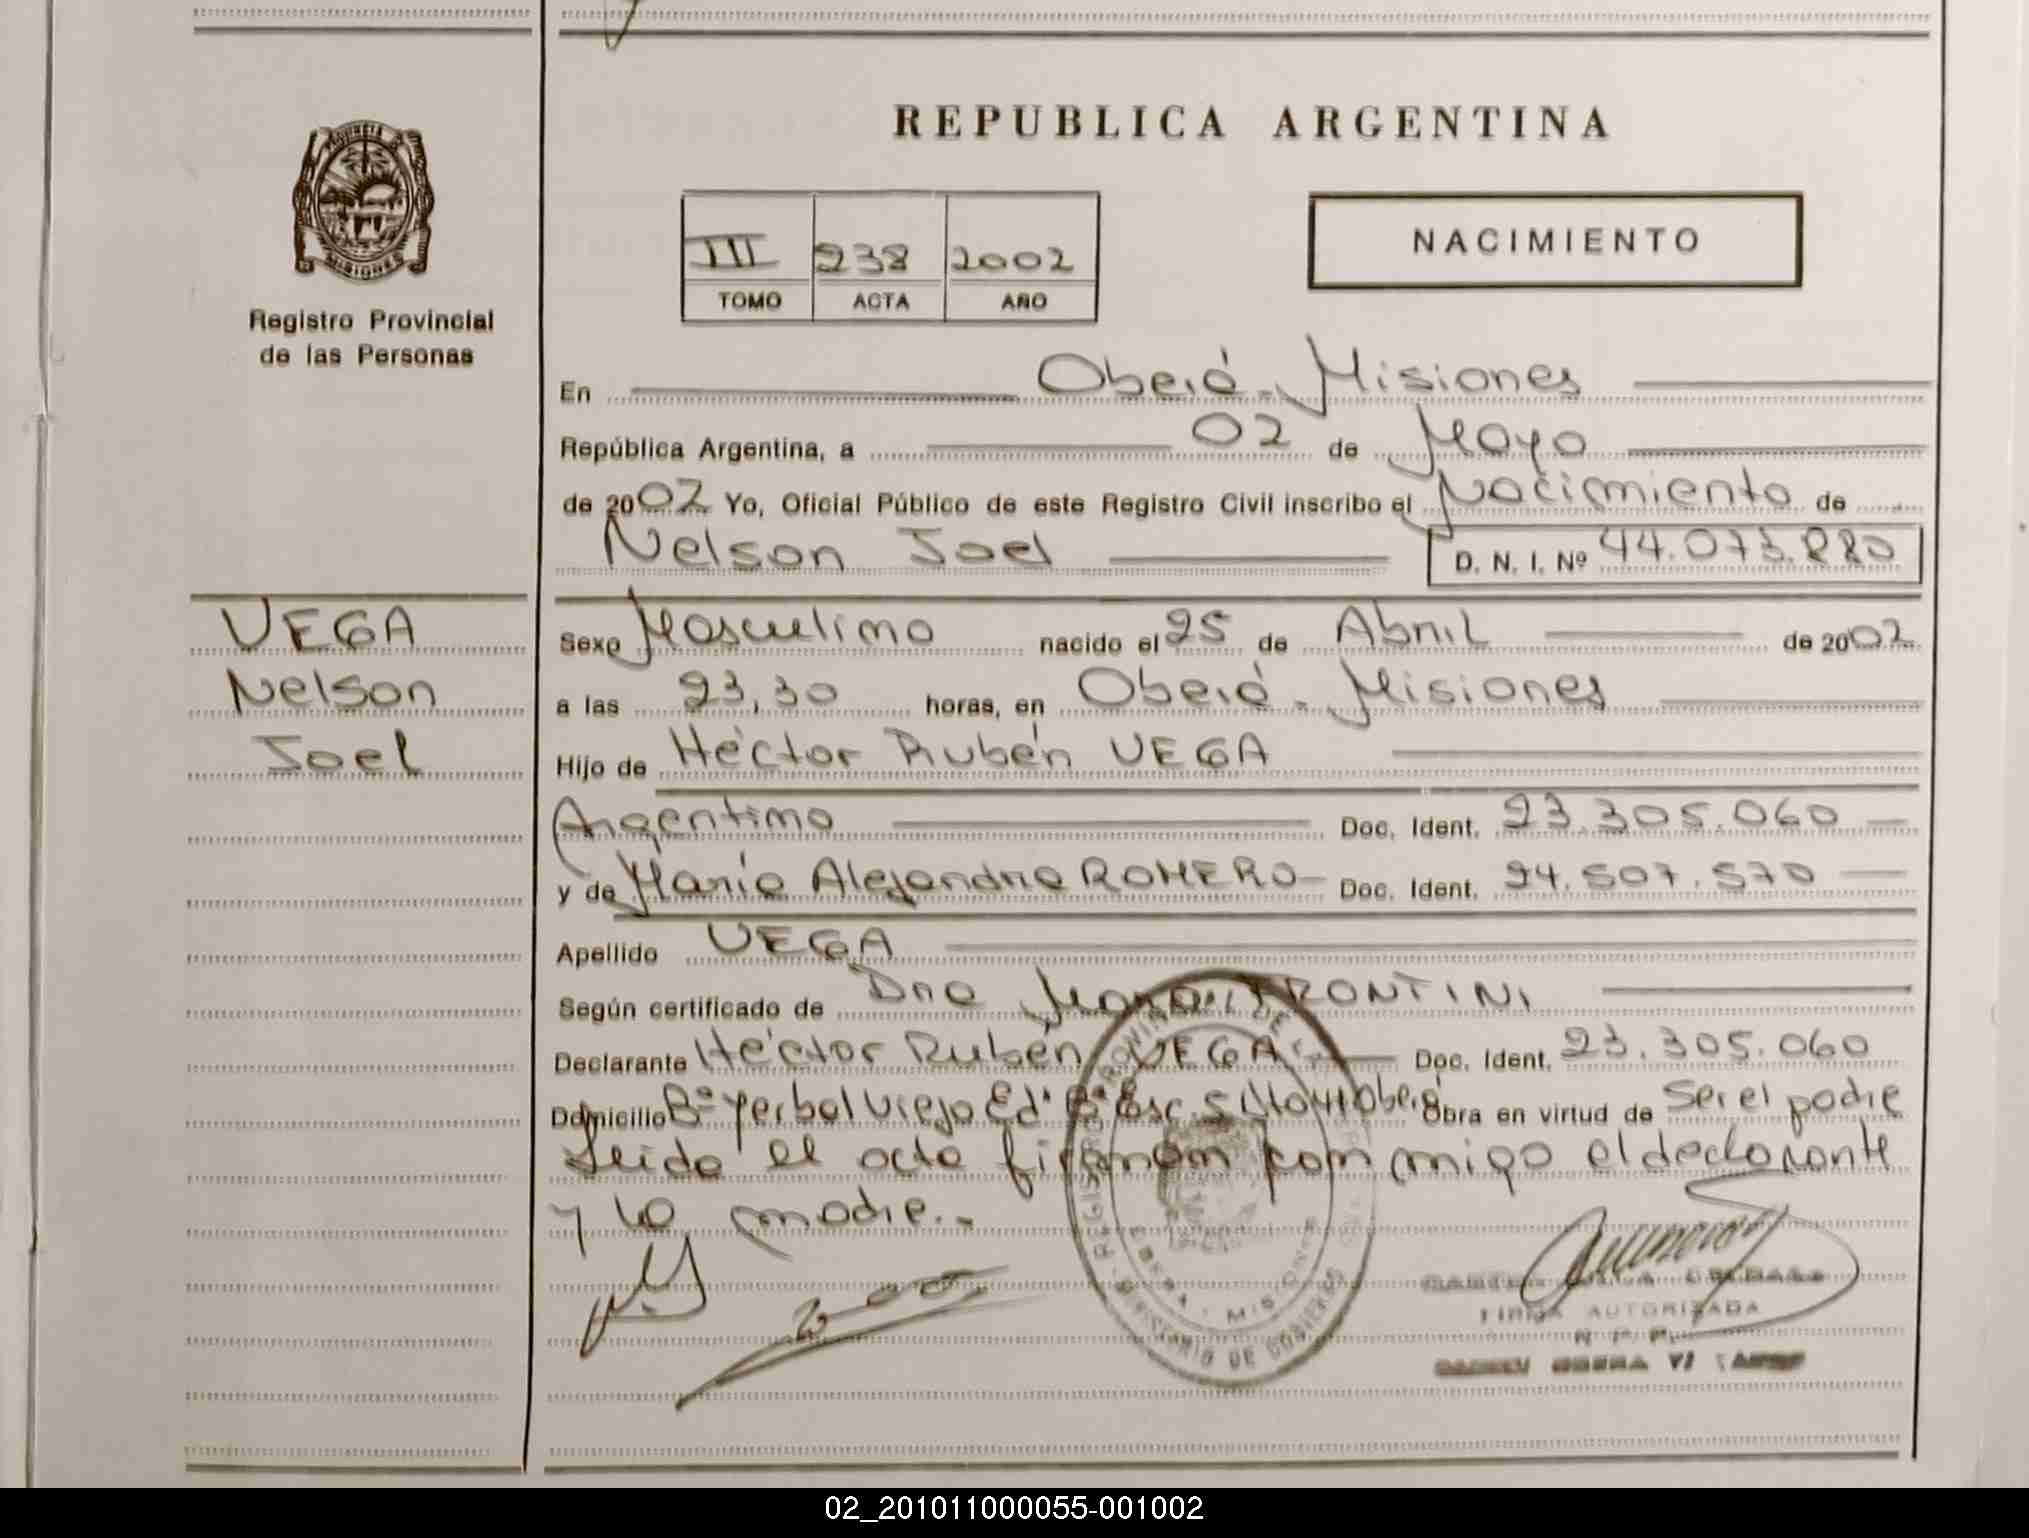 REPUBLICA ARGENTINA
PROVINCIA
MISIONES
Registro Provincial
de las Personas
III 238 2002
TOMO ACTA AÑO
NACIMIENTO
En Oberá - Misiones
República Argentina, a 02 de Mayo
de 2002 Yo, Oficial Público de este Registro Civil inscribo el Nacimiento de
Nelson Joel D. N. I. Nº 44.073.880
VEGA
Nelson
Joel
Sexo Masculino nacido el 25 de Abril de 2002
a las 23,30 horas, en Oberá - Misiones
Hijo de Héctor Rubén VEGA
Argentino Doc. Ident. 23.305.060
y de María Alejandra ROMERO Doc. Ident. 24.507.570
Apellido VEGA
Según certificado de Dra FRONTINI
Declarante Héctor Rubén VEGA Doc. Ident. 23.305.060
Domicilio Bº Yerbal Viejo Ed. Oberá Obra en virtud de Ser el padre
Leida el acta firman conmigo el declarante
y la madre.-
REGISTRO PROVINCIAL DE LAS
MINISTERIO DE GOBIERNO
OBERA - MISIONES
FIRMA AUTORIZADA
R P P
02_201011000055-001002